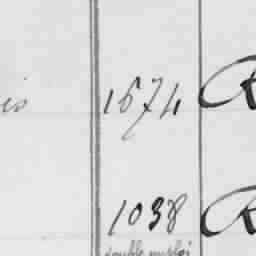 is 1674 R
1038 R
double emploi